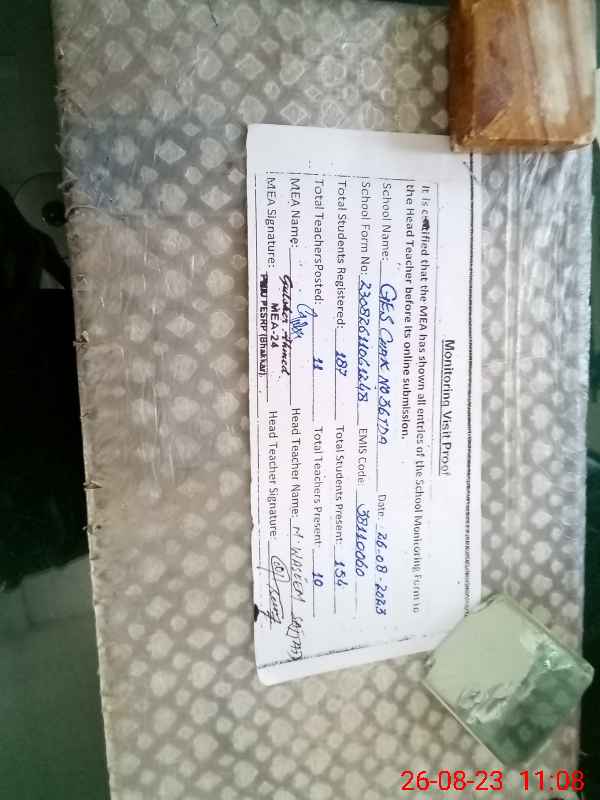 Monitoring Visit Proof
It is certified that the MEA has shown all entries of the School Monitoring Form to
the Head Teacher before its online submission.
School Name: GES CHAK NO 36TDA Date: 26-08-2023
School Form No: 23082611061248 EMIS Code: 38110060
Total Students Registered: 187 Total Students Present: 154
Total Teachers Posted: 11 Total Teachers Present: 10
MEA Name: Head Teacher Name: M. WASEEM SAJJAD
Gulsher Ahmed
MEA-24
MEA Signature: PMIU PESRP (Bhakkar) Head Teacher Signature:
26-08-23 11:08